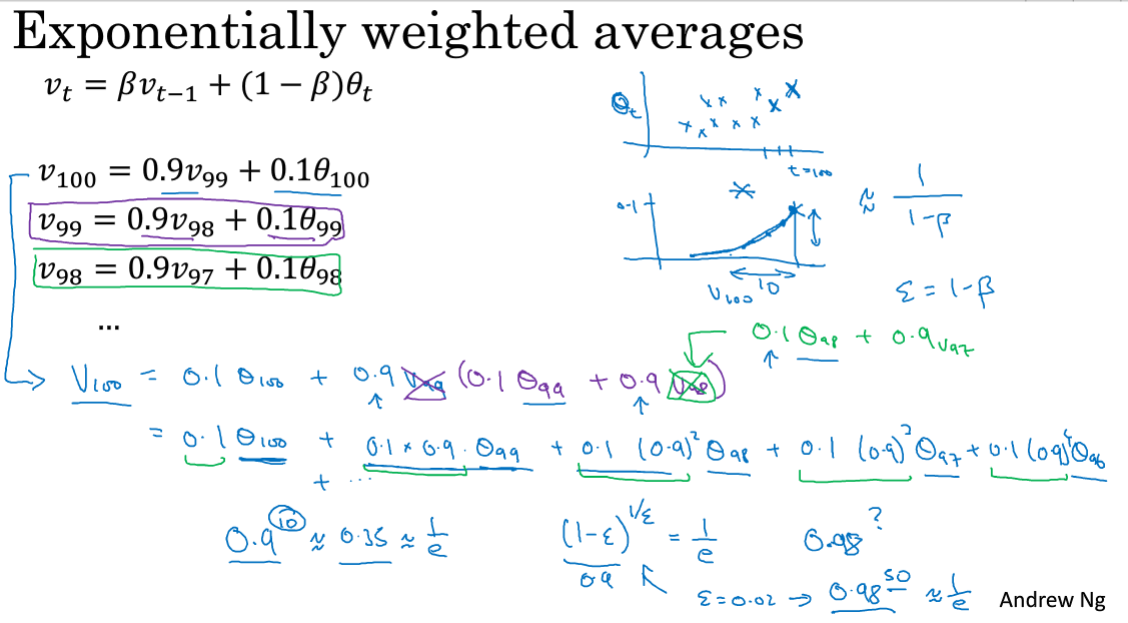 Exponentially weighted averages
v_t = βv_{t−1} + (1 − β)θ_t
θ_t
t=100
v_100 = 0.9v_99 + 0.1θ_100
v_99 = 0.9v_98 + 0.1θ_99
v_98 = 0.9v_97 + 0.1θ_98
...
0.1
≈ 1/(1-β)
10
V_100
ε = 1-β
0.1 θ_98 + 0.9 v_97
V_100 = 0.1 θ_100 + 0.9 v_99 (0.1 θ_99 + 0.9 v_98)
= 0.1 θ_100 + 0.1 × 0.9 · θ_99 + 0.1 (0.9)^2 θ_98 + 0.1 (0.9)^3 θ_97 + 0.1 (0.9)^4 θ_96
+ ...
0.9^10 ≈ 0.35 ≈ 1/e
(1-ε)^{1/ε} = 1/e
0.9
0.98^?
ε = 0.02 → 0.98^50 ≈ 1/e
Andrew Ng